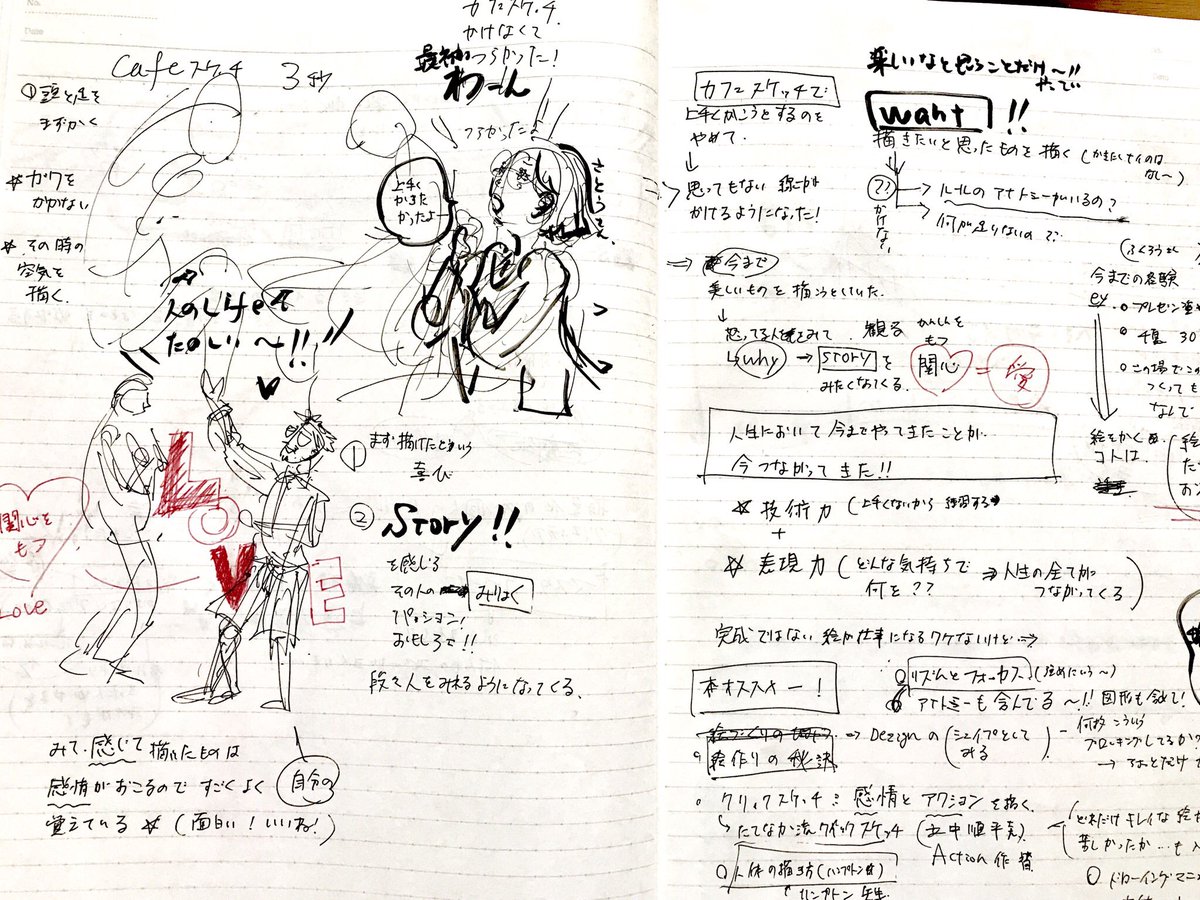 No.
Date
カフェスケッチ
かけなくて
最初は
つらかった!
わーん
Cafeスケッチ 3秒
① 頭と足を
まずかく
☆ ガワを
かかない
☆ その時の
空気を
描く
つらかったよ
さとうさん
上手く
かきた
かったよー
人のLifeって
たのしい〜!!
LOVE
関心を
もつ
Love
① まず描けたという
喜び
② STORY!!
を感じる
その人の みりょく
パッション!
おもしろで!!
段々人をみれるようになってくる。
みて、感じて描いたものは
感情がおこるので すごくよく 自分の
覚えている ☆ (面白い!いいね!)
楽しいなと思うことだけ〜!!
やってい
カフェスケッチで
上手くかこうとするのを
やめて、
↓
思ってもない 線が
かけるようになった!
want!!
描きたいと思ったものを描く
→ ルールの アナトミーがいるの?
→ 何が足りないので?
⇒ 今まで
美しいものを描こうとしていた。
↓
怒ってる人達をみて 観る
↳ why → STORYを
みたくなってくる。
かんしんを
もつ
関心 = 愛
人生において 今までやってきたことが
今つながってきた!!
☆ 技術力 (上手くないから 練習する)
+
☆ 表現力 (どんな気持ちで
何を?? ⇒ 人生の全てが
つながってくる)
完成ではない 絵が仕事になるワケないけど ⇒
本オススメー!
リズムとフォース
アナトミーも含んでる〜!! 図形も含めて!
絵作りの秘訣
⇒ Dezignの (シェイプとして
みる)
何故こういう
ブロッキングしてるか
○ クイックスケッチ: 感情とアクションを描く
↳ たてなか流クイックスケッチ (立中順平さん)
Action作督
○ 人体の描き方(ハンプトン)
ハンプトン先生
ふくろうさん
今までの経験
ex ○ プレゼン
○ この場で
つくっても
なんで
絵をかく
コトは、
どれだけキレイな絵
苦しかったか…も
○ ドローイングマニ